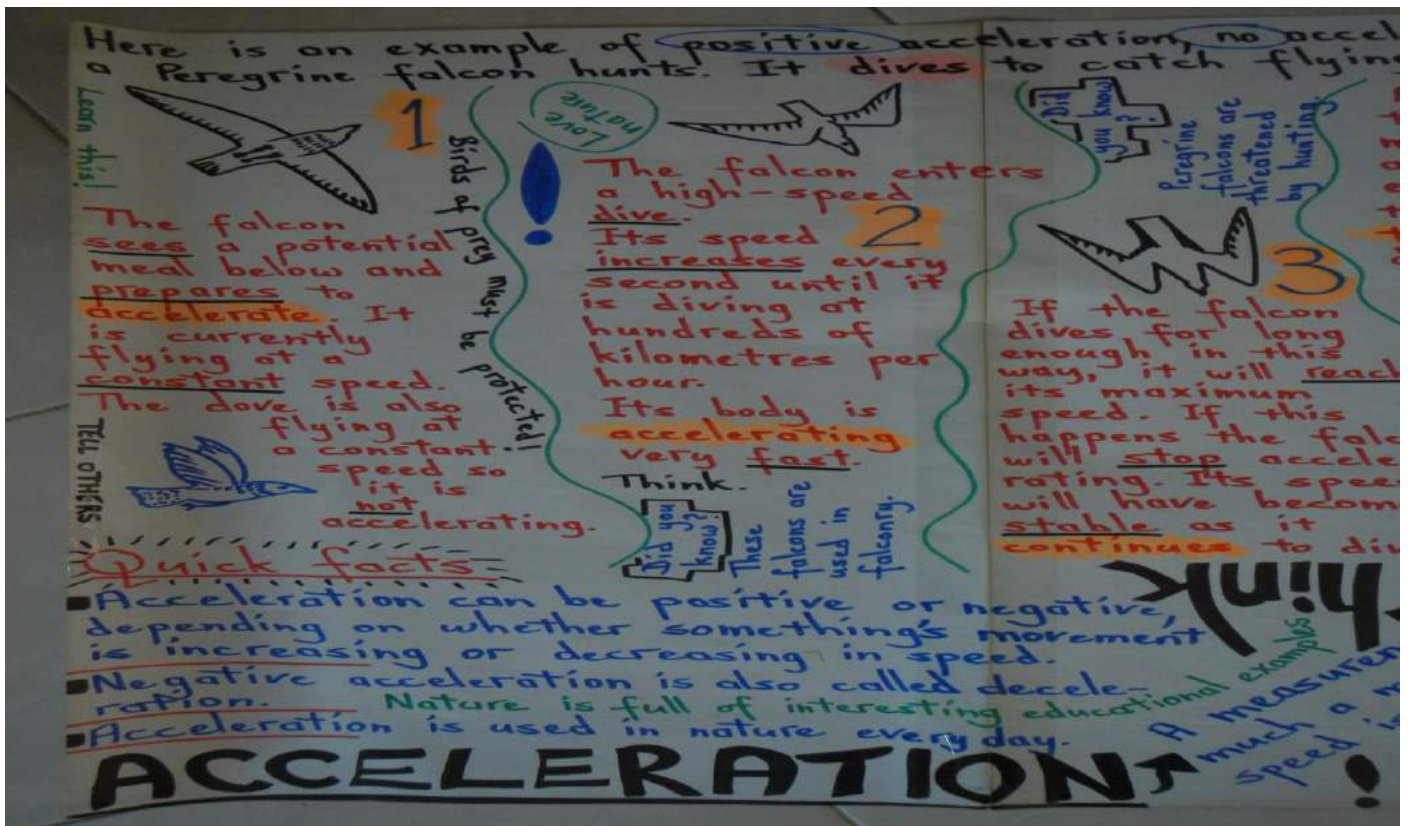 Here is an example of positive acceleration, no accel
a Peregrine falcon hunts. It dives to catch flying
Learn this!
1
The falcon
sees a potential
meal below and
prepares to
accelerate. It
is currently
flying at a
constant speed.
The dove is also
flying at
a constant
speed so
it is
not
accelerating.
TELL OTHERS
Birds of prey must be protected!
Love
nature
!
The falcon enters
a high-speed
dive.
2
Its speed
increases every
second until it
is diving at
hundreds of
kilometres per
hour.
Its body is
accelerating
very fast.
Think.
Did you
know?
These
falcons are
used in
falconry.
Did
you know
?
Peregrine
falcons are
threatened
by hunting.
3
If the falcon
dives for long
enough in this
way, it will reach
its maximum
speed. If this
happens the falc
will stop accele-
rating. Its spee
will have becom
stable as it
continues to div
hink
Quick facts
Acceleration can be positive or negative,
depending on whether something's movement
is increasing or decreasing in speed.
Negative acceleration is also called decele-
ration.
Nature is full of interesting educational examples.
Acceleration is used in nature every day.
ACCELERATION
A measurem
much a m
speed is
!